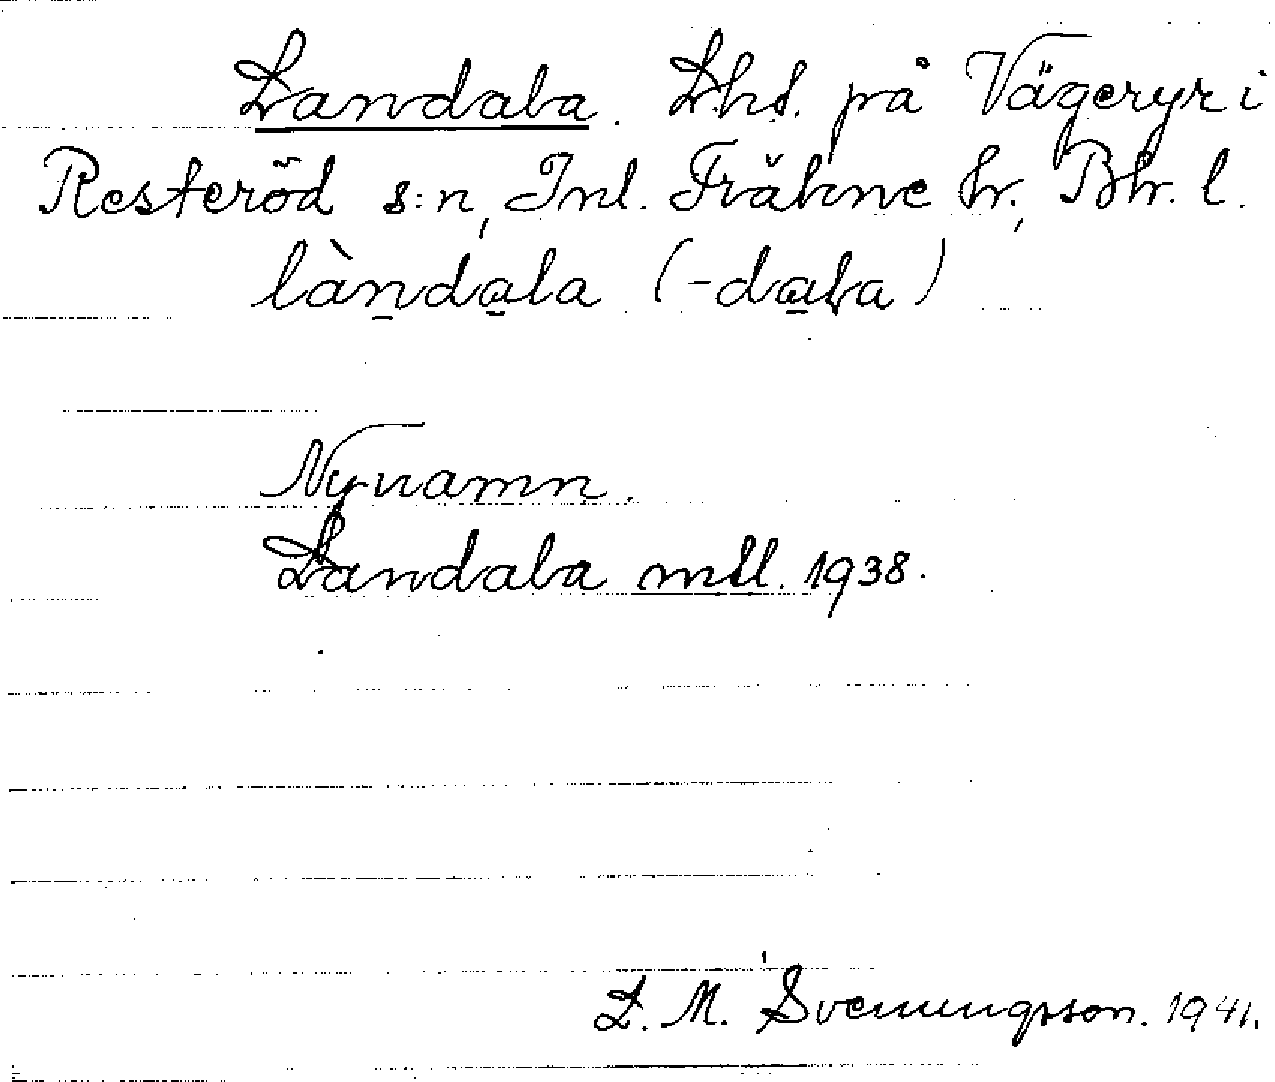 Landala. Lhs. på Vägeryr i
Resteröd s:n, Inl. Fräkne hr., Bhr. l.
làn̠da̠la (-da̠ɽa)
Nynamn.
Landala mtl. 1938.
L. M. Svenungsson. 1941.